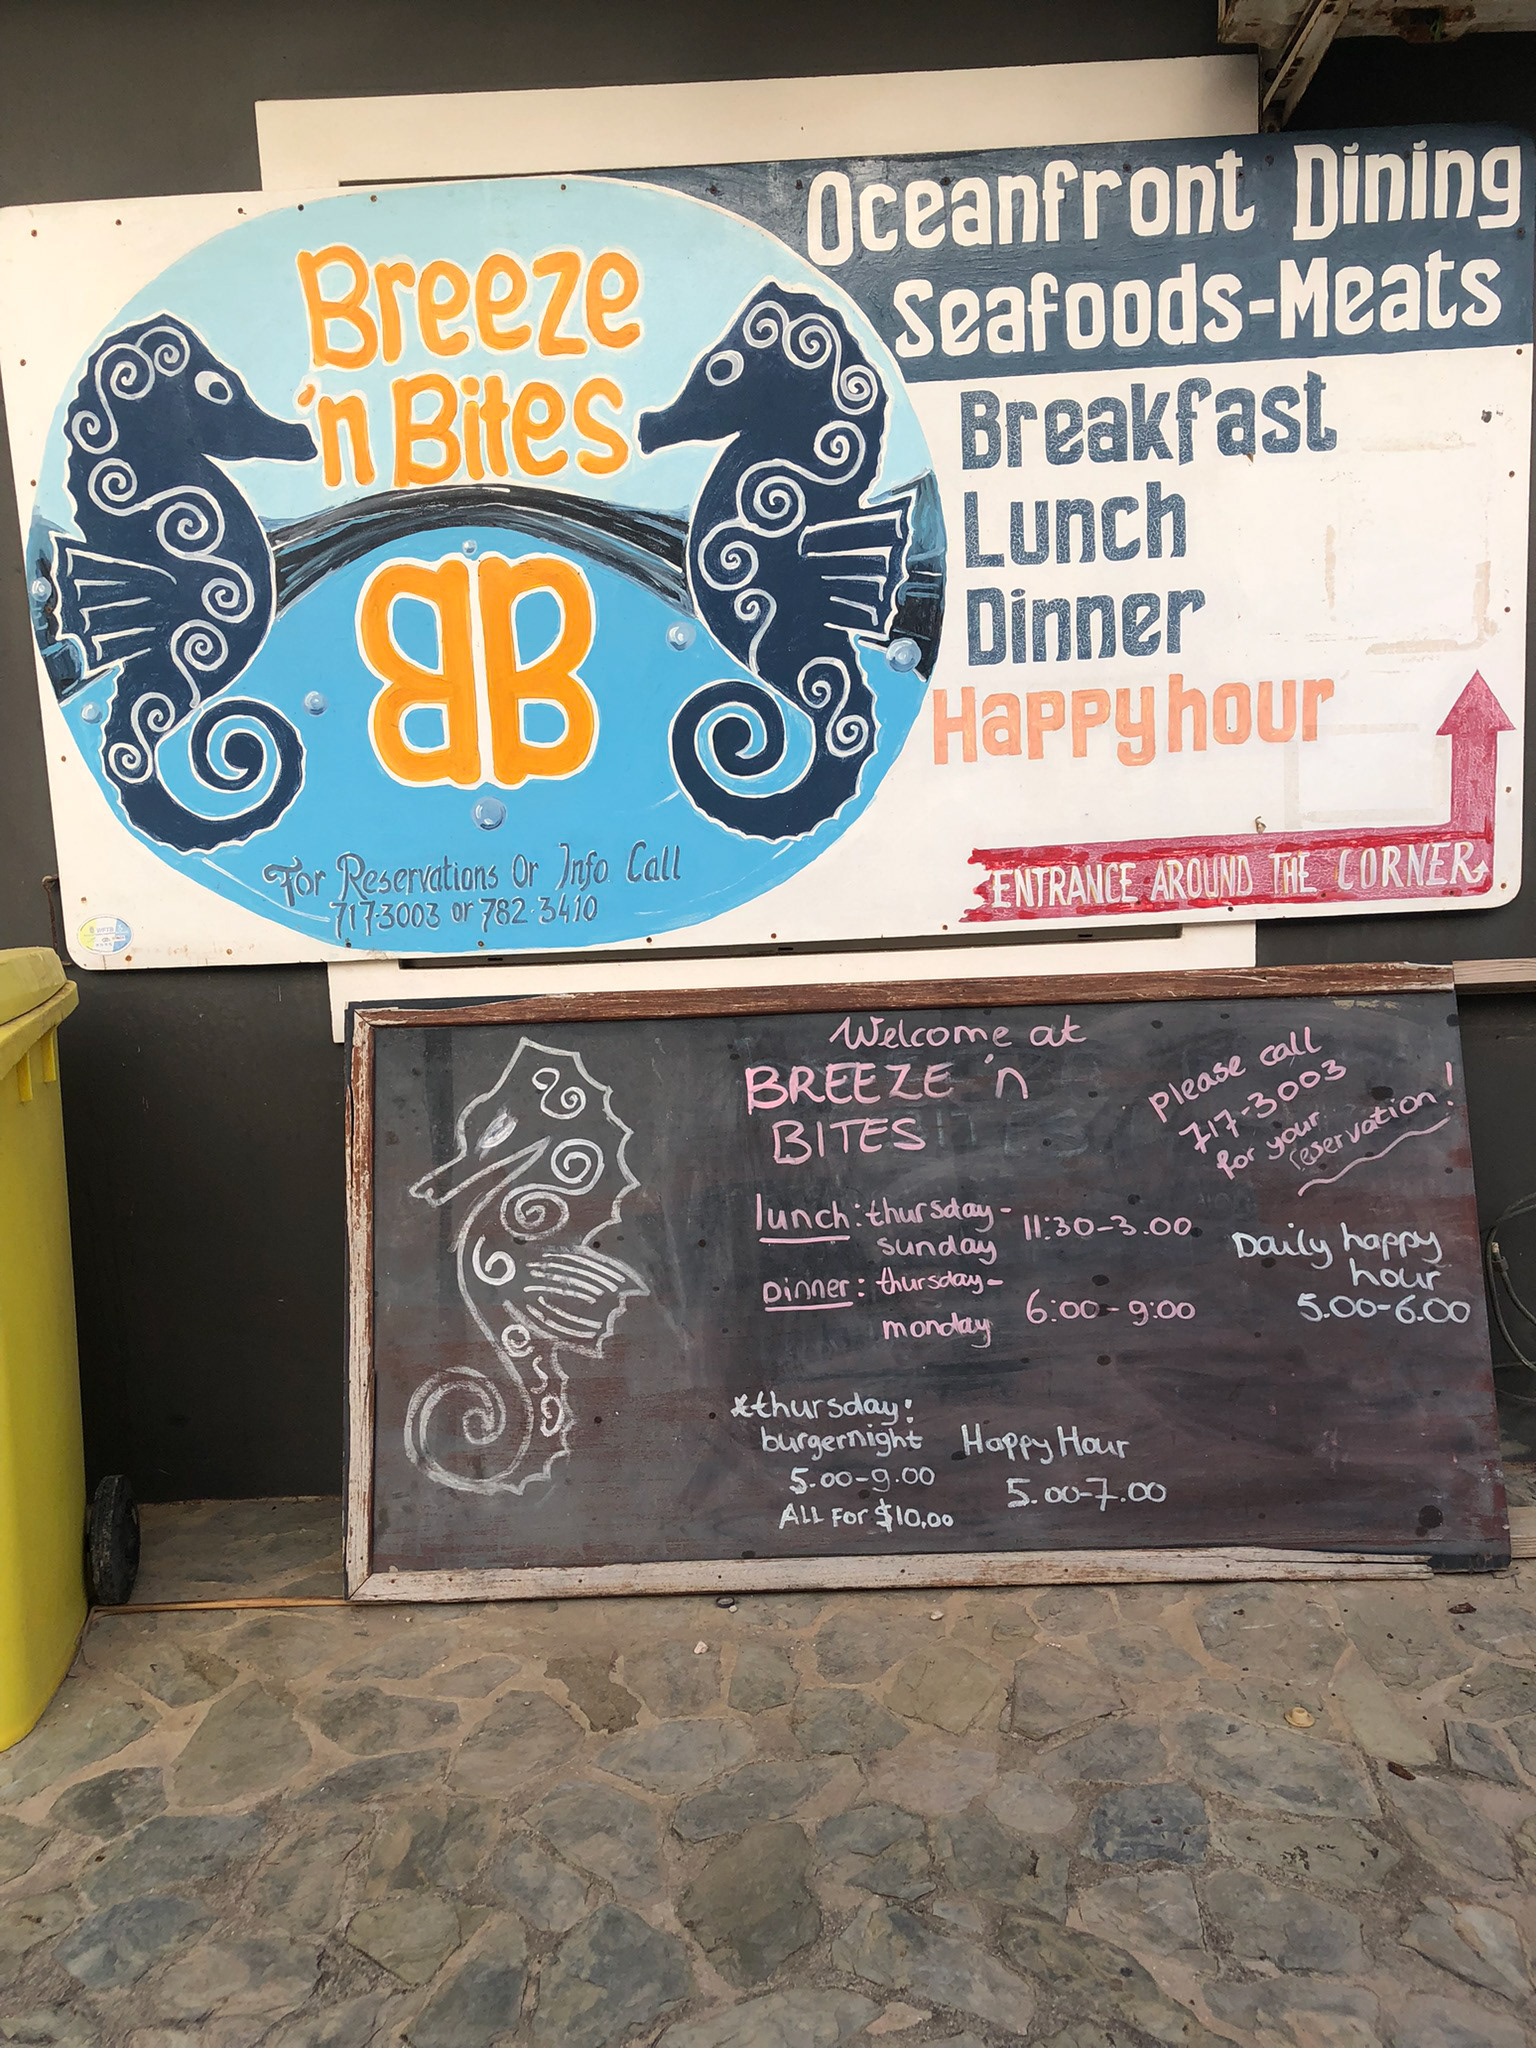 Oceanfront Dining
Seafoods-Meats
Breeze
'n Bites
BB
For Reservations Or Info Call
717.3003 or 782.3410
Breakfast
Lunch
Dinner
Happy hour
ENTRANCE AROUND THE CORNER
Welcome at
BREEZE 'n
BITES
please call
717-3003
for your
reservation!
lunch: thursday- 11:30-3.00
sunday
Dinner: thursday-
monday 6:00-9:00
Daily happy
hour
5.00-6.00
*thursday:
burgernight
5.00-9.00
ALL FOR $10,00
Happy Hour
5.00-7.00